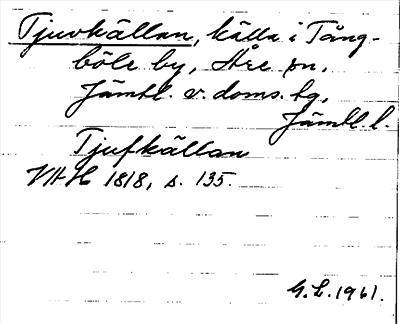 Tjuvkällan, källa i Tång-
böle by, Åre sn,
Jämtl. v. doms. tg,
Jämtl. l.
Tjufkällan
VHH 1818, s. 135.
G.L. 1961.